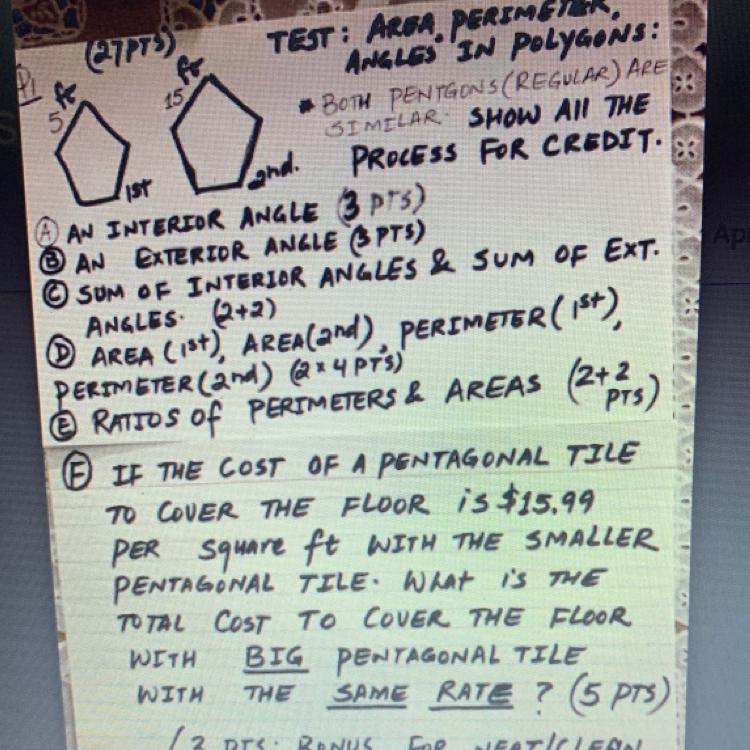 (27PTS)
TEST: AREA, PERIMETER,
ANGLES IN POLYGONS:
P1
5 ft
15 ft
1st
2nd.
* BOTH PENTGONS (REGULAR) ARE
SIMILAR. SHOW All THE
PROCESS FOR CREDIT.
Ⓐ AN INTERIOR ANGLE (3 PTS)
Ⓑ AN EXTERIOR ANGLE (3 PTS)
Ⓒ SUM OF INTERIOR ANGLES & SUM OF EXT.
ANGLES. (2+2)
Ⓓ AREA (1st), AREA(2nd), PERIMETER(1st),
PERIMETER(2nd) (2 x 4 PTS)
Ⓔ RATIOS of PERIMETERS & AREAS (2+2
PTS)
Ⓕ IF THE COST OF A PENTAGONAL TILE
TO COVER THE FLOOR is $15.99
PER square ft WITH THE SMALLER
PENTAGONAL TILE. What is THE
TOTAL COST TO COVER THE FLOOR
WITH BIG PENTAGONAL TILE
WITH THE SAME RATE ? (5 PTS)
(3 PTS: BONUS FOR NEAT/CLEAN